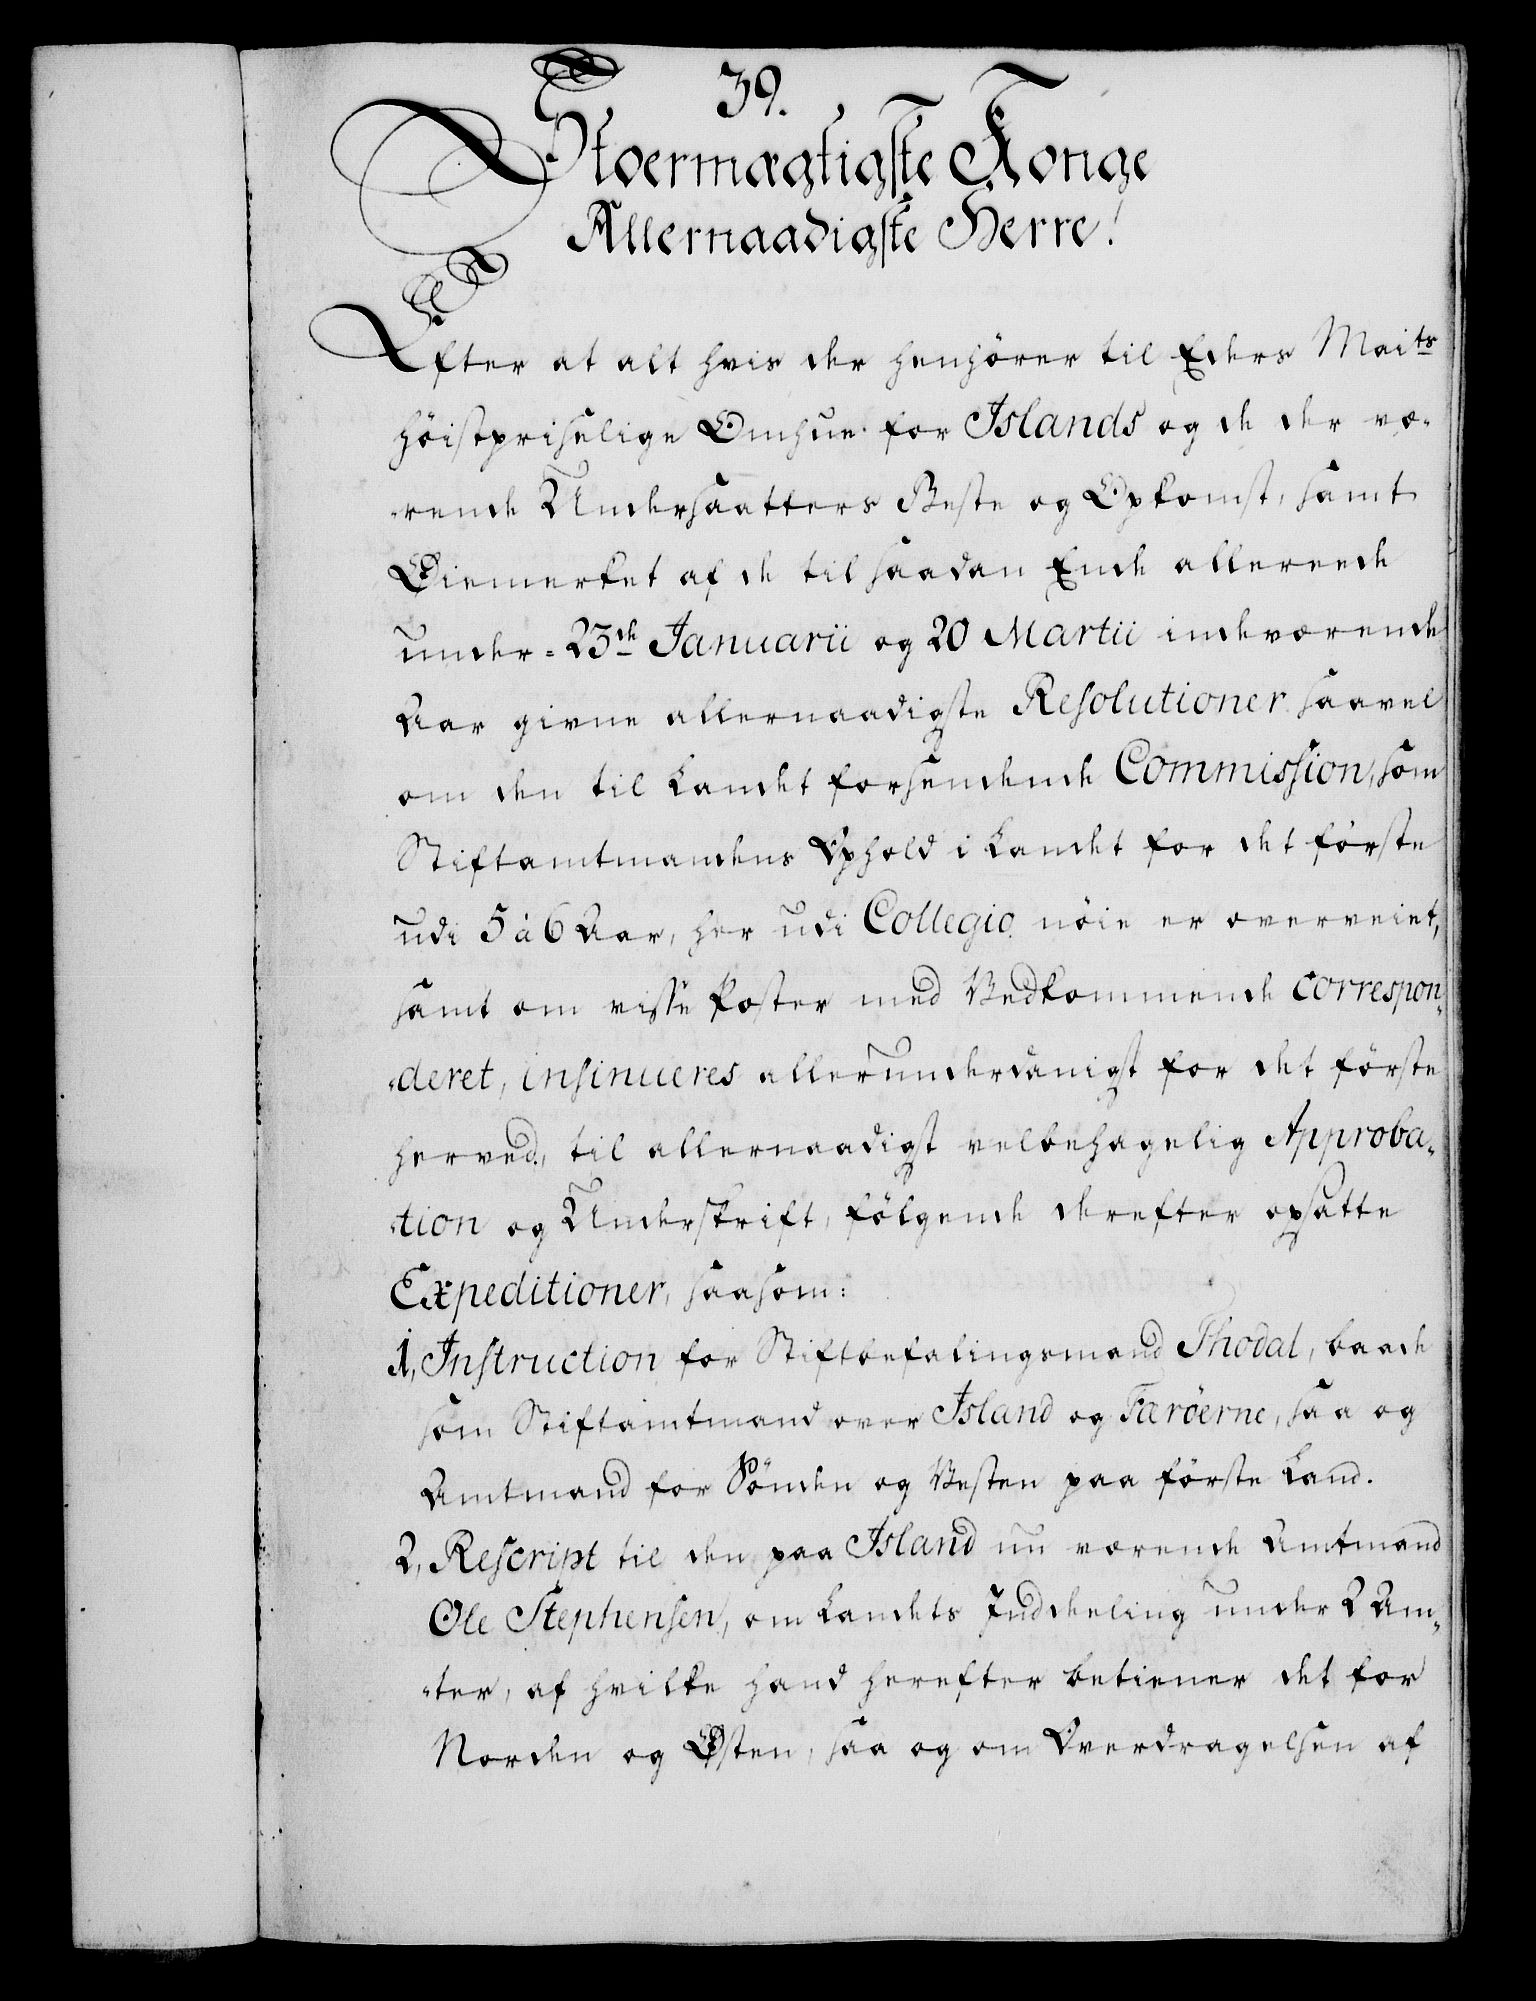 39.
Stoermægtigste Konge
Allernaadigste Herre!
Efter at alt hvis der henhörer til Eders Maits
höistpriselige Omhue for Islands og de der væ-
-rende Undersaatters Beste og Opkomst, samt
Øiemerket af de til saadan Ende allereede
under=23de Januarii og 20 Martii indeværende
Aar givne allernaadigste Resolutioner saavel
om den til Landet forsendende Commission, som
Stiftamtmandens Ophold i Landet for det förste
udi 5 à 6 Aar, her udi Collegio nöie er overveiet,
samt om visse Poster med Vedkommende correspon-
-deret, insinueres allerunderdanigst for det förste
herved, til allernaadigst velbehagelig Approba-
-tion og Underskrift, fölgende derefter opsatte
Expeditioner, saasom:
1, Instruction for Stiftbefalingsmand Thodal, baade
som Stiftamtmand over Island og Færöerne, saa og
Amtmand for Sönden og Vesten paa förste Land.
2, Rescript til den paa Island nu værende Amtmand
Ole Stephensen, om Landets Inddeeling under 2 Am-
-ter, af hvilke hand herefter betiener det for
Norden og Østen, saa og om Overdragelsen af